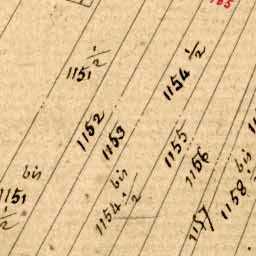 1151 1/2
1154 1/2
1152
1153
1155
1156
bis
1151 1/2
bis
1154 1/2
1157
bis
1158